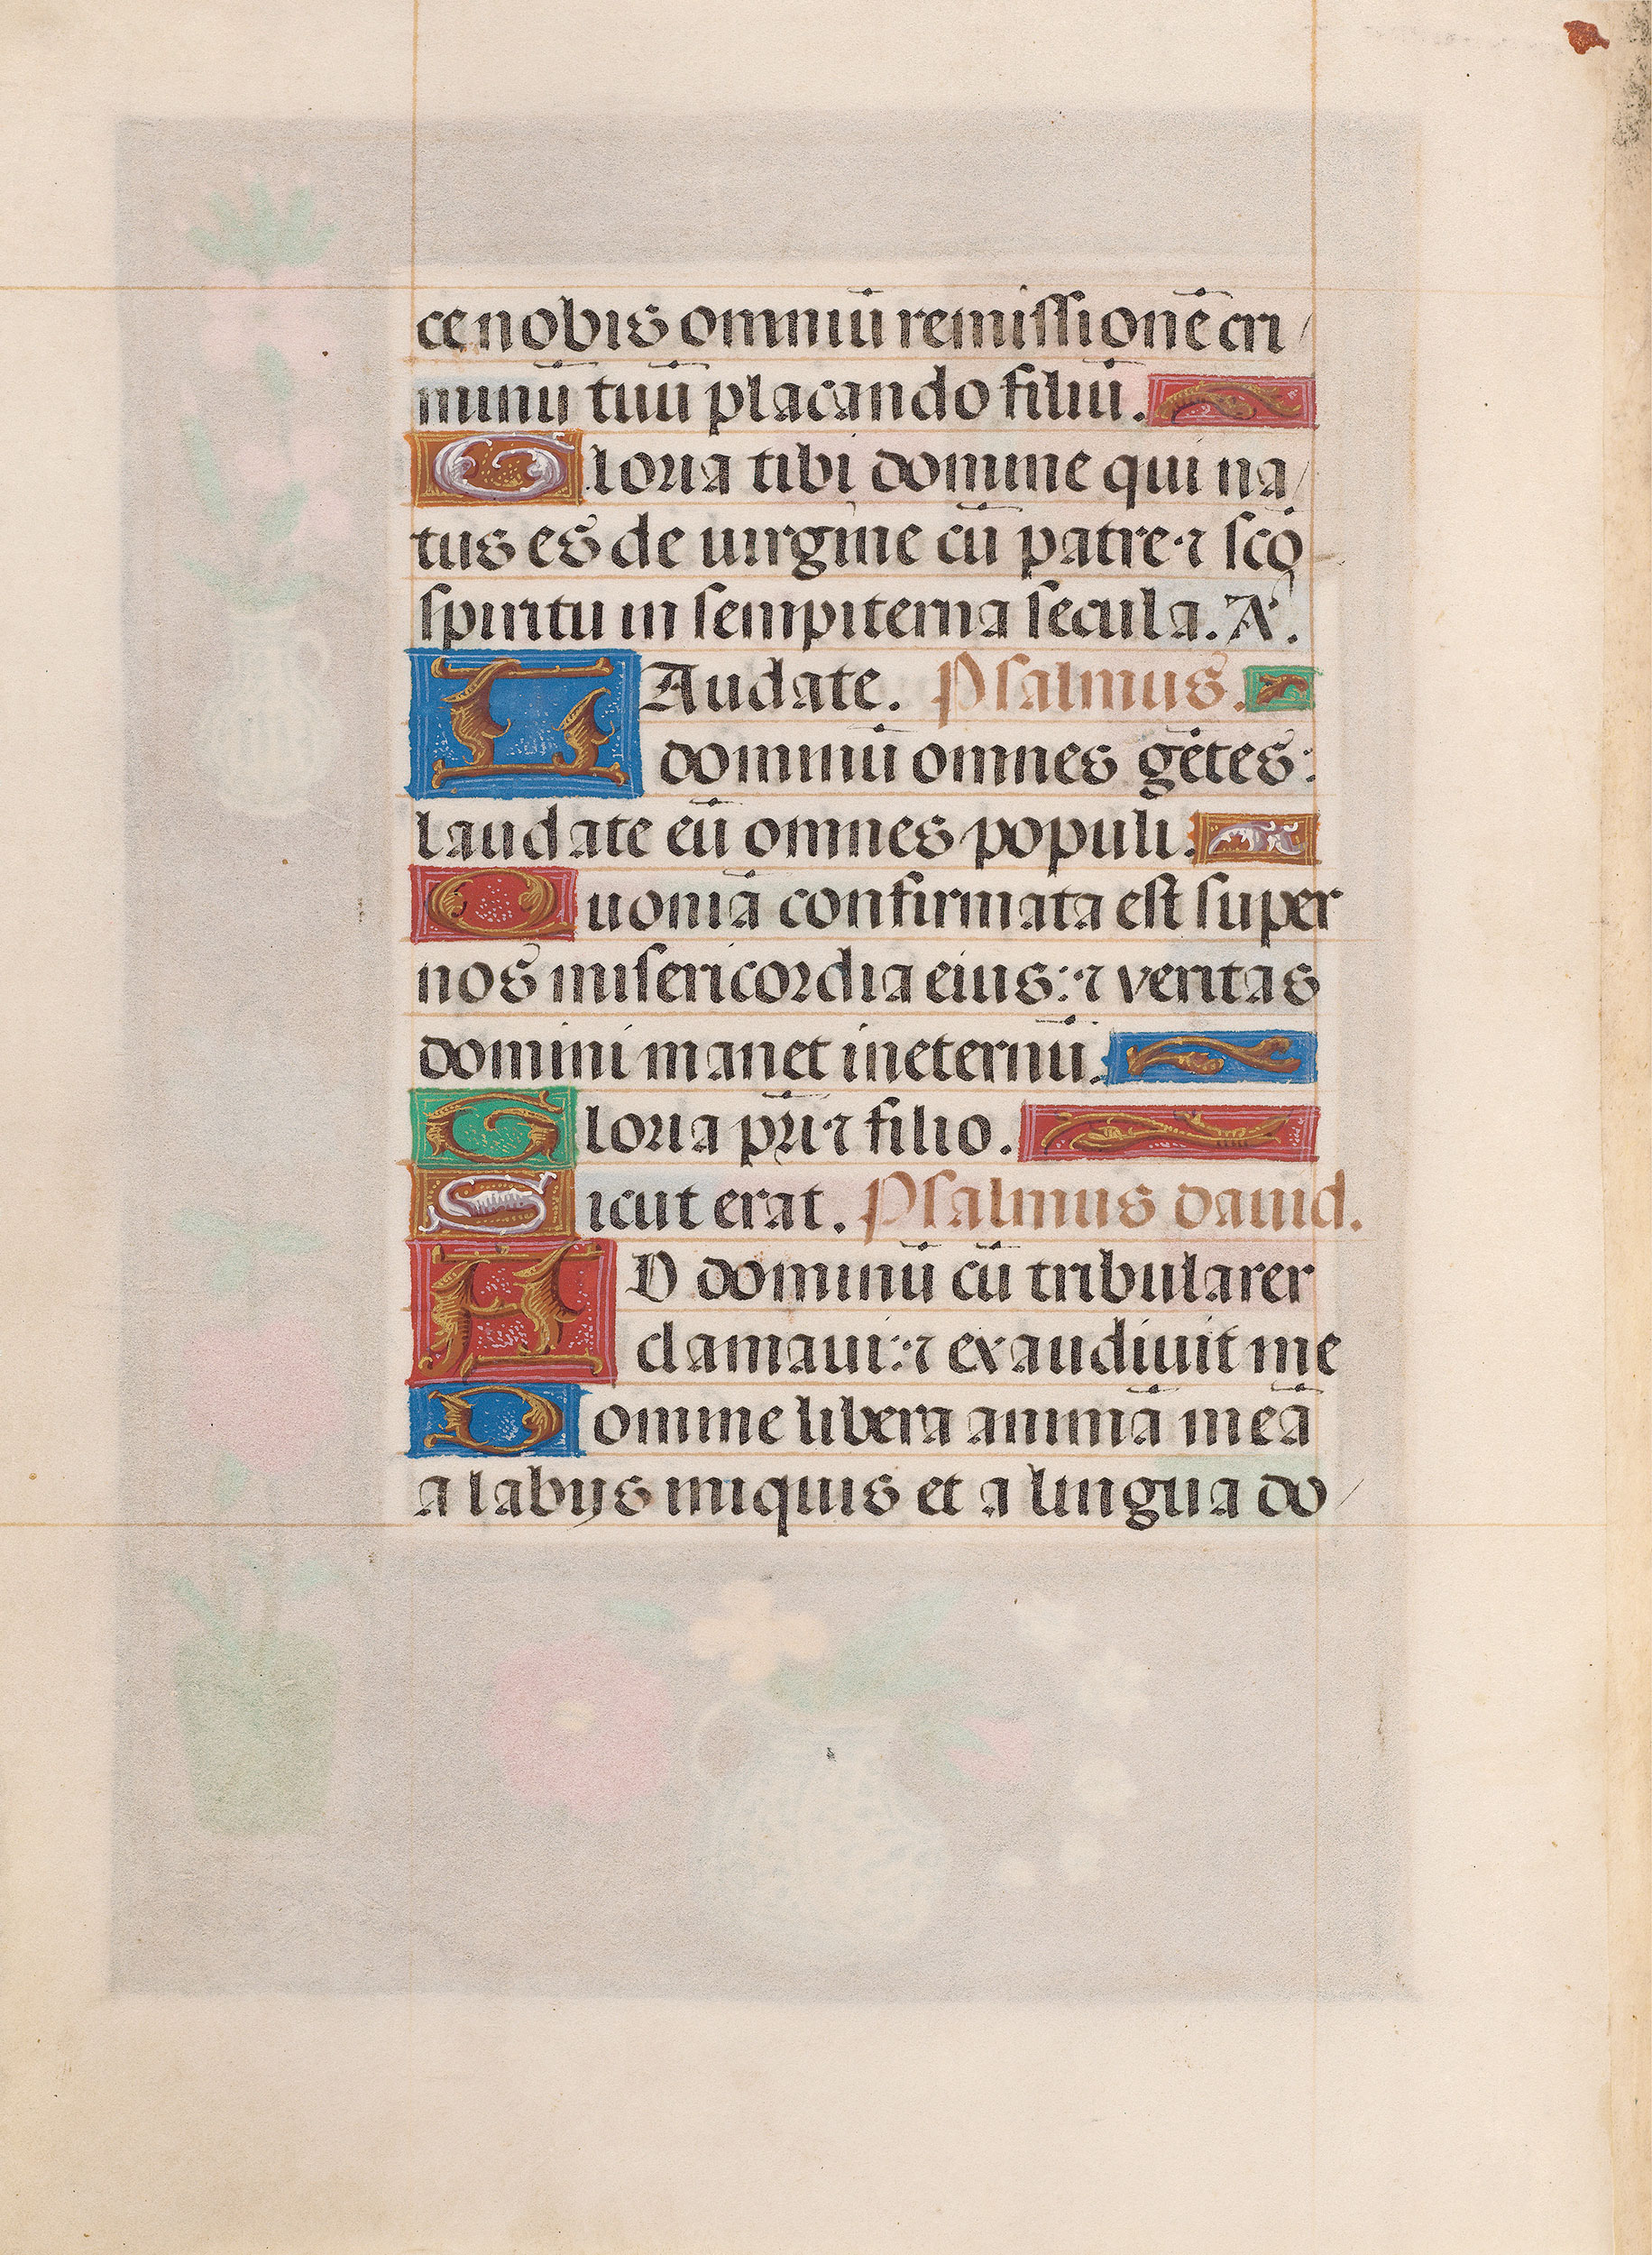 ce nobis omniū remissionē cri/
minū tuū placando filiū.
Gloria tibi domine qui na/
tus es de uirgine cū patre ⁊ scō
spiritu in sempiterna secula. A.
LAudate. Psalmus.
dominū omnes gētes:
laudate eū omnes populi.
Quoniā confirmata est super
nos misericordia eius: ⁊ veritas
domini manet in eternū.
Gloria pr̄i ⁊ filio.
Sicut erat. Psalmus dauid.
AD dominū cū tribularer
clamaui: ⁊ exaudiuit me
Domine libera animā meā
a labijs iniquis et a lingua do/